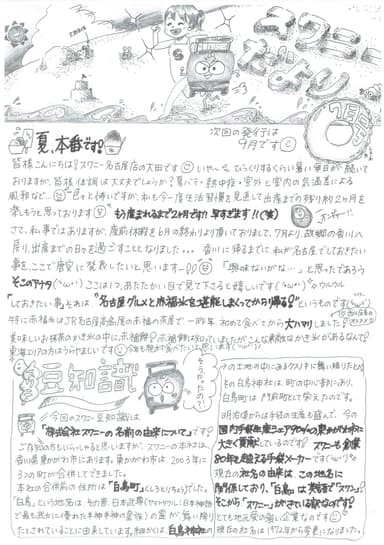 スワニー
だより
7月号
次回の発行は
9月です
夏、本番です!
皆様こんにちは!スワニー名古屋店の太田です
いや〜、びっくりするくらい暑い毎日が続いて
おりますが、皆様体調は大丈夫でしょうか?夏バテ・熱中症・室外と室内の気温差による
風邪など…
と怖いですが、私も今一度生活習慣を見直して出産までの残り約2ヶ月を
楽しもうと思っております
もう産まれるまで2ヶ月です!!早すぎます!!(笑)
さて、私事ではありますが、産前休暇を6月の終わより頂いておりまして、7月より故郷の香川へ
戻り、出産までの日々を過ごすこととなりました。
香川に帰るまでに、私が名古屋でしておきたい
事を、ここで唐突に発表したいと思いますー!!
「興味ないがな…」と思ったであろう
そこのアナタ
ここは1つ、あたたかい目で見て下さると嬉しいです
ウルウル
しておきたい事、それは"名古屋グルメと赤福氷を堪能しまくってから帰る!"というものです
特に赤福氷はJR名古屋高島屋の赤福の茶屋で、一昨年初めて食べてから大ハマりしました!
美味しいお抹茶のかき氷の中に赤福餅!赤福餅は知っていましたが、こんな素敵なかき氷があるなんて!
東海エリアの方はうらやましいです
豆知識!
そうだったの!?
今回のスワニー豆知識は、
「株式会社スワニーの名前の由来について」です
ご存知の方もいらっしゃると思いますが、スワニーの本社は、
香川県東かがわ市にあります。東かがわ市は、2003年に
3つの町が合併してできました。
本社の合併前の住所は「白鳥町」(しろとりちょう)でした。
「白鳥」という地名は、その昔、日本武尊(ヤマトタケル:日本神話
で最も武士らしく優れた半神半人の皇族)の霊が舞い降り
たとされていることに由来しています。細かくは、白鳥神社
その土地の中にあるクスノキに舞い降りたとか。
その白鳥神社は、町の中心にあり、
白鳥町は門前町として栄えたのです。
明治頃からは手袋の生産も盛んで、今の
国内手袋生産シェア90%の東かがわ市に
大きく貢献しているのです!スワニーも創業
80年を超える手袋メーカーです
現在の社名の由来は、この地名に
関係しており、「白鳥」は英語で「スワン」。
そこから「スワニー」がきている訳なのです!
とても地元愛の強い企業なのです
現在の社名は1972年から変更になりました。